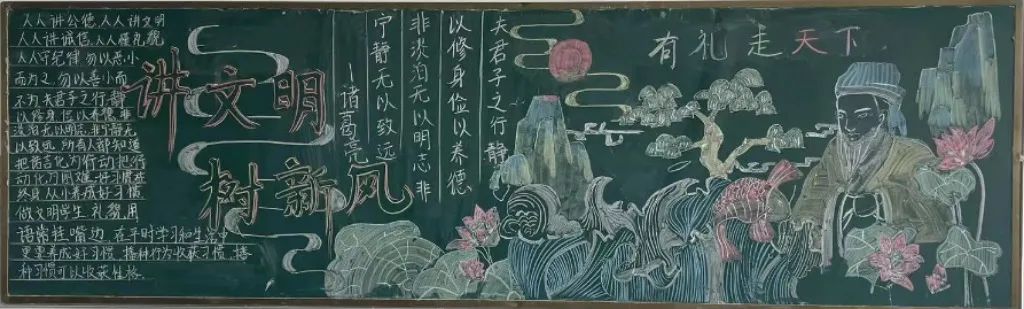 人人讲公德,人人讲文明
人人讲诚信,人人懂礼貌
人人守纪律,勿以恶小
而为之,勿以善小而
不为 夫君子之行静
以修身,俭以养德,非
淡泊无以明志,非宁静无
以致远,所有人都知道
把誓言化为行动,把行
动化为 好习惯
终身 从小养成好习惯
做文明学生 礼貌用
语常挂嘴边 在平时学习和生活中
更要养成好习惯,播种行为收获习惯,播
种习惯可以收获性格.
讲文明
树新风
夫君子之行静
以修身俭以养德
非淡泊无以明志非
宁静无以致远
-诸葛亮
有礼走天下